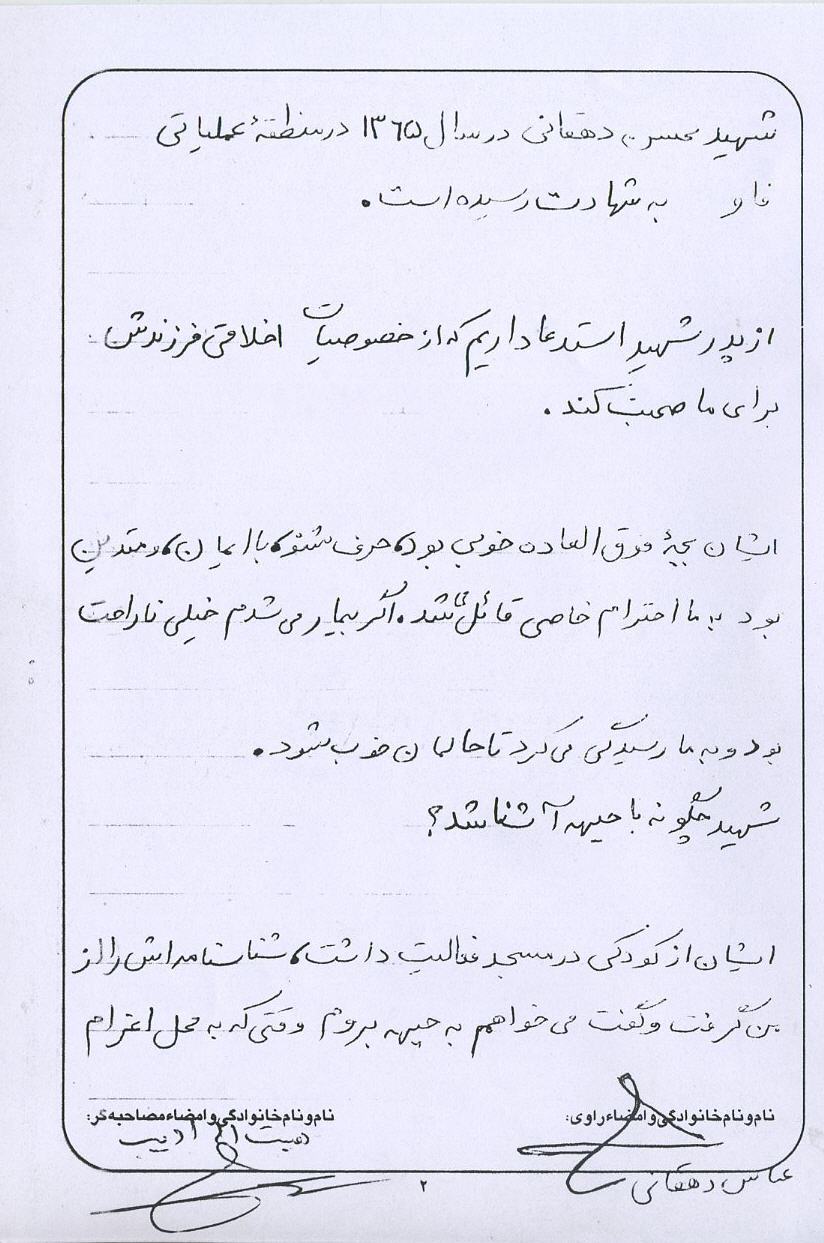 شهید محسن دهقانی در سال ۱۳۶۵ در منطقهٔ عملیاتی
فاو به شهادت رسیده است.
از پدر شهید استدعا داریم که از خصوصیات اخلاقی فرزندش
برای ما صحبت کند.
ایشان بچهٔ فوق العاده خوبی بود، حرف شنو، با ایمان، و متدین
بود به ما احترام خاصی قائل می‌شد. اگر بیمار می‌شدم خیلی ناراحت
بود و به ما رسیدگی می‌کرد تا حالمان خوب شود.
شهید چگونه با جبهه آشنا شد؟
ایشان از کودکی در مسجد فعالیت داشت، شناسنامه‌اش را از
من گرفت و گفت می‌خواهم به جبهه بروم وقتی که به محل اعزام
نام و نام خانوادگی و امضاء راوی:
نام و نام خانوادگی و امضاء مصاحبه گر:
ادیب
عباس دهقانی
۲